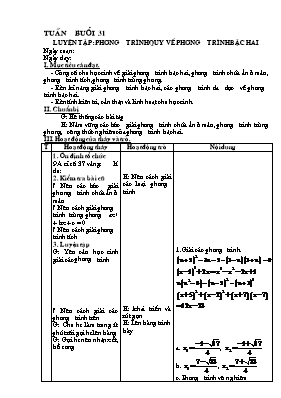 TUẦN BUỔI 31
LUYỆN TẬP: PHƯƠNG TRÌNH QUY VỀ PHƯƠNG TRÌNH BẬC HAI
Ngày soạn:
Ngày dạy:
I. Mục tiêu cần đạt.
- Củng cố cho học sinh về giải phương trình bậc hai, phương trình chứa ẩn ở mẫu, phương trình tích, phương trình trùng phương.
- Rèn kĩ năng giải phương trình bậc hai, các phương trình đưa được về phương trình bậc hai.
- Rèn tính kiên trì, cẩn thận và linh hoạt cho học sinh.
II. Chuẩn bị
G: Hệ thống các bài tập
H: Nắm vững các bước giải phương trình chứa ẩn ở mẫu, phương trình trùng phương, công thức nghiệm của phương trình bậc hai.
III. Hoạt động của thầy và trò.
T Hoạt động thầy Hoạt động trò Nội dung
1. Ổn định tổ chức
9A sĩ số 37 vắng: H do:
2. Kiểm tra bài cũ
? Nêu các bước giải phương trình chứa ẩn ở mẫu
? Nêu cách giải phương trình trùng phương ax⁴ + bx² + c = 0
? Nêu cách giải phương trình tích
3. Luyện tập
G: Yêu cầu học sinh giải các phương trình
? Nêu cách giải các phương trình trên
G: Cho hs làm trong ít phút rồi gọi hs lên bảng
G: Gọi hs nêu nhận xét, bổ sung
H: Nêu cách giải các loại phương trình
H: khai triển và rút gọn
H: Lên bảng trình bày
1. Giải các phương trình.
= 12x - 23
c. Phương trình vô nghiệm